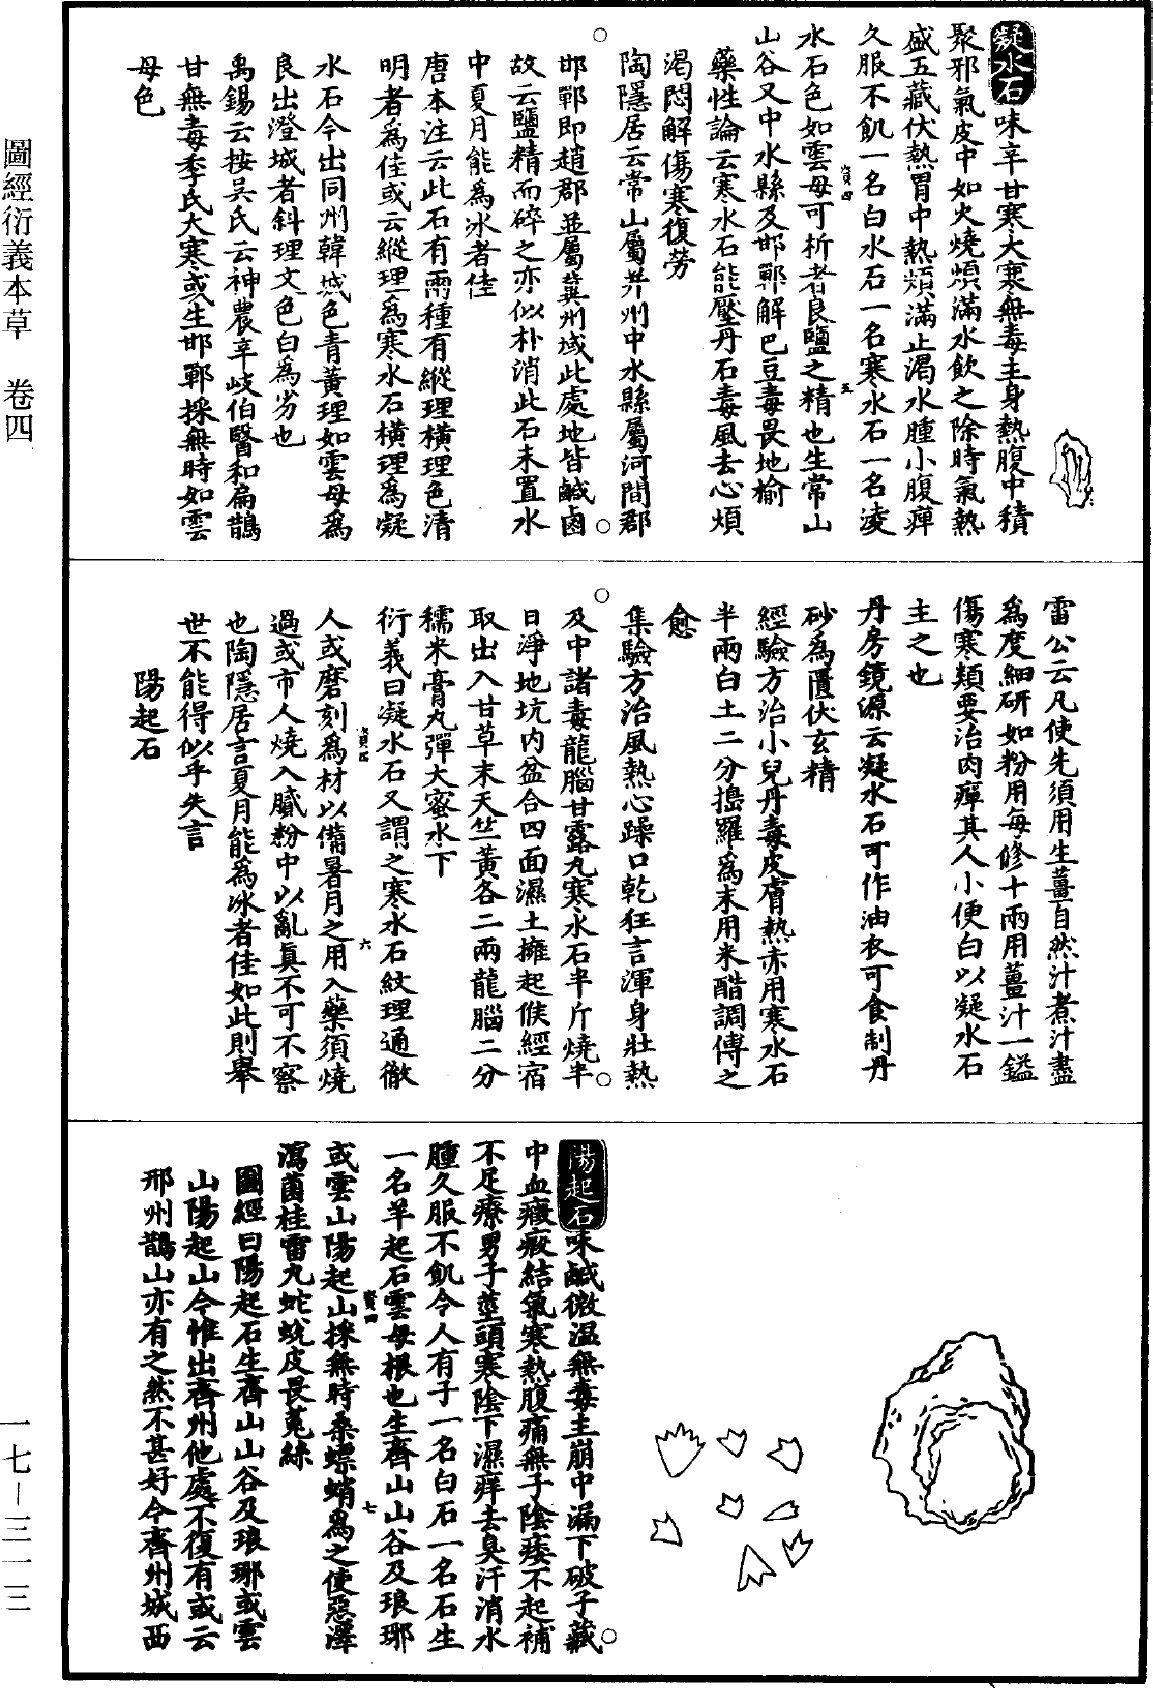 圖經衍義本草　卷四
凝水石味辛甘寒大寒無毒主身熱腹中積
聚邪氣皮中如火燒煩滿水飲之除時氣熱
盛五藏伏熱胃中熱煩滿止渴水腫小腹痺
久服不飢一名白水石一名寒水石一名凌
水石色如雲母可析者良鹽之精也生常山
山谷又中水縣及邯鄲解巴豆毒畏地榆
藥性論云寒水石能壓丹石毒風去心煩
渴悶解傷寒復勞
陶隱居云常山屬并州中水縣屬河間郡
邯鄲即趙郡並屬冀州域此處地皆鹹鹵
故云鹽精而碎之亦似朴消此石末置水
中夏月能為冰者佳
唐本注云此石有兩種有縱理橫理色清
明者為佳或云縱理為寒水石橫理為凝
水石今出同州韓城色青黃理如雲母為
良出澄城者斜理文色白為劣也
禹錫云按吳氏云神農辛岐伯醫和扁鵲
甘無毒季氏大寒或生邯鄲採無時如雲
母色
雷公云凡使先須用生薑自然汁煮汁盡
為度細研如粉用每修十兩用薑汁一鎰
傷寒類要治肉癉其人小便白以凝水石
主之也
丹房鏡源云凝水石可作油衣可食制丹
砂為匱伏玄精
經驗方治小兒丹毒皮膚熱赤用寒水石
半兩白土二分搗羅為末用米醋調傅之
愈
集驗方治風熱心躁口乾狂言渾身壯熱
及中諸毒龍腦甘露丸寒水石半斤燒半
日淨地坑內盆合四面濕土擁起候經宿
取出入甘草末天竺黃各二兩龍腦二分
糯米膏丸彈大蜜水下
衍義曰凝水石又謂之寒水石紋理通徹
人或磨刻為材以備暑月之用入藥須燒
過或市人燒入膩粉中以亂真不可不察
也陶隱居言夏月能為冰者佳如此則舉
世不能得似乎失言
陽起石
陽起石味鹹微溫無毒主崩中漏下破子藏
中血癥瘕結氣寒熱腹痛無子陰痿不起補
不足療男子莖頭寒陰下濕痒去臭汗消水
腫久服不飢令人有子一名白石一名石生
一名羊起石雲母根也生齊山山谷及琅琊
或雲山陽起山採無時桑螵蛸為之使惡澤
瀉菌桂雷丸蛇蛻皮畏菟絲
圖經曰陽起石生齊山山谷及琅琊或雲
山陽起山今惟出齊州他處不復有或云
邢州鵲山亦有之然不甚好今齊州城西
一七—三一三